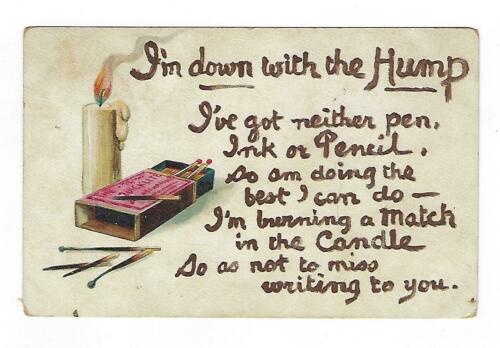 I'm down with the Hump
I've got neither pen,
Ink or Pencil,
So am doing the
best I can do —
I'm burning a Match
in the Candle
So as not to miss
writing to you.